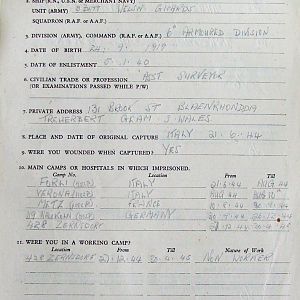 2. SHIP (R.N., U.S.N. & MERCHANT NAVY)
UNIT (ARMY) WELSH GUARDS
SQUADRON (R.A.F. & A.A.F.)
3. DIVISION (ARMY), COMMAND (R.A.F. & A.A.F.) 6" ARMOURED DIVISION
4. DATE OF BIRTH 24. 9. 1919
5. DATE OF ENLISTMENT 6. 1. 40
6. CIVILIAN TRADE OR PROFESSION "ASST SURVEYOR"
(OR EXAMINATIONS PASSED WHILE P/W)
7. PRIVATE ADDRESS 131 BROOK ST BLAENRHONDDA
TREHERBERT GLAM S WALES
8. PLACE AND DATE OF ORIGINAL CAPTURE ITALY 21. 6. 44
9. WERE YOU WOUNDED WHEN CAPTURED? YES
10. MAIN CAMPS OR HOSPITALS IN WHICH IMPRISONED.
Camp No. Location From Till
FORLI ITALY 21. 6. 44 AUG 44
VERONA ITALY AUG 44
METZ FRANCE
GERMANY
428 ZERNSDORF
11. WERE YOU IN A WORKING CAMP?
Location From Till Nature of Work
428 ZERNSDORF 21. 12. 44 20. 4. 45 NON WORKER